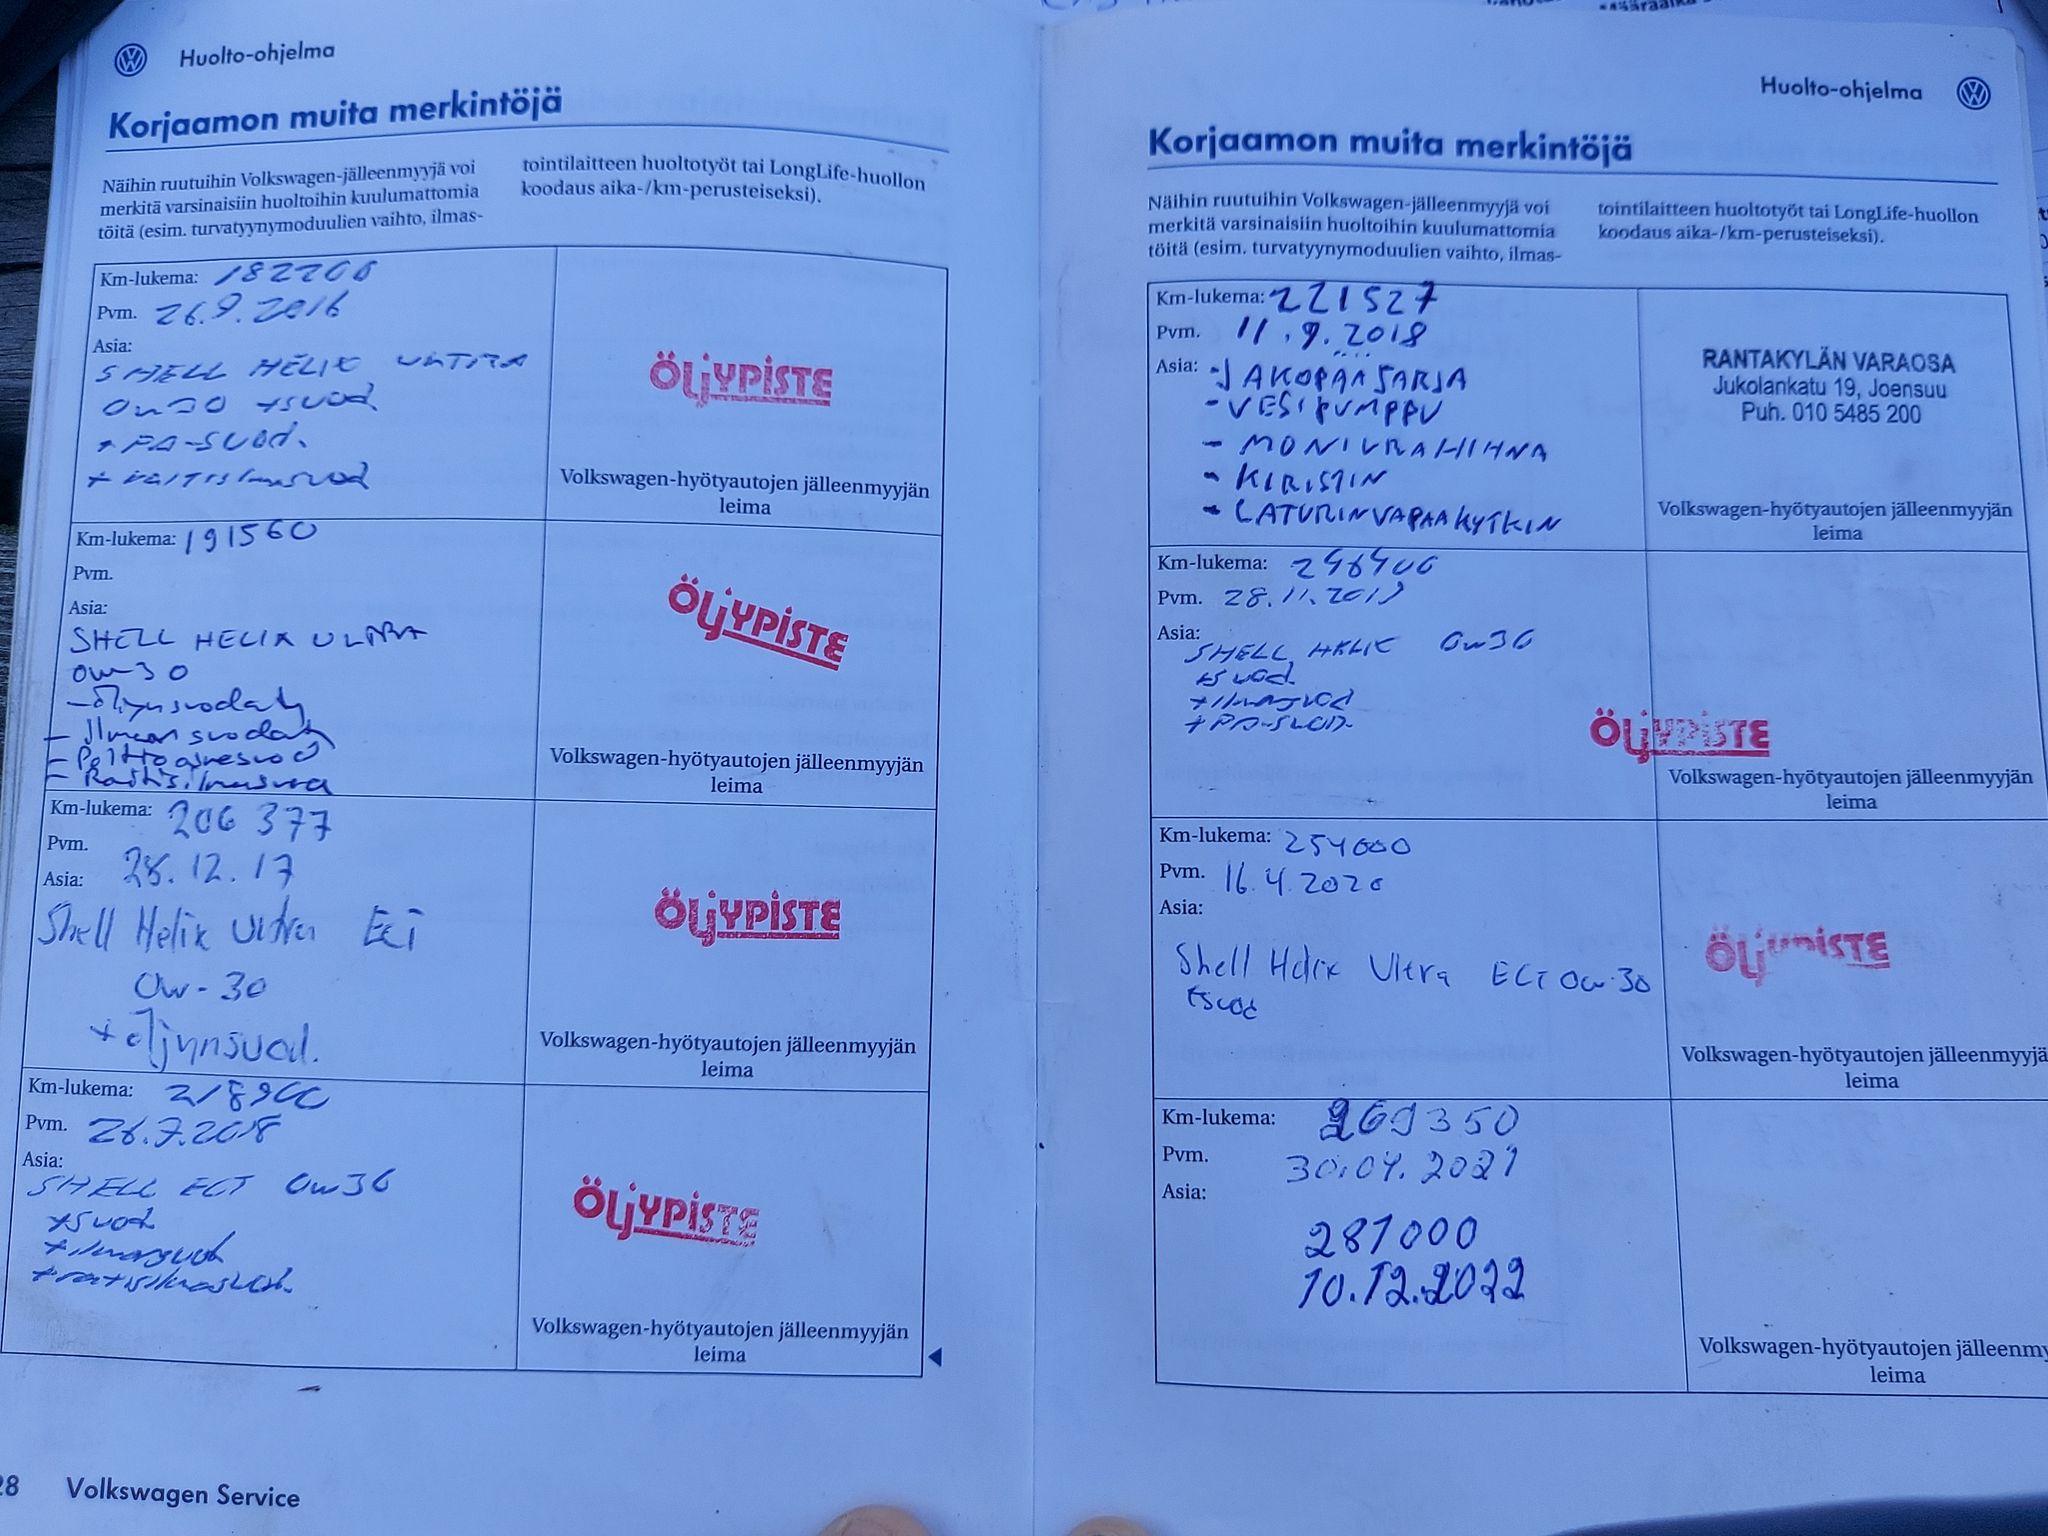 Huolto-ohjelma
Korjaamon muita merkintöjä
Näihin ruutuihin Volkswagen-jälleenmyyjä voi
merkitä varsinaisiin huoltoihin kuulumattomia
töitä (esim. turvatyynymoduulien vaihto, ilmas-
tointilaitteen huoltotyöt tai LongLife-huollon
koodaus aika-/km-perusteiseksi).
Km-lukema: 182200
Pvm. 26.9.2016
Asia:
SHELL HELIX ULTRA
0W30 +suod
+ PA-suod.
+ raitisilmasuod
ÖLJYPISTE
Volkswagen-hyötyautojen jälleenmyyjän
leima
Km-lukema: 191560
Pvm.
Asia:
SHELL HELIX ULTRA
0W-30
- öljynsuodatin
- Ilman suodatin
- Polttoainesuod
- Raitisilmasuod
ÖLJYPISTE
Volkswagen-hyötyautojen jälleenmyyjän
leima
Km-lukema: 206 377
Pvm. 28.12.17
Asia:
Shell Helix Ultra ECT
0W-30
+ öljynsuod.
ÖLJYPISTE
Volkswagen-hyötyautojen jälleenmyyjän
leima
Km-lukema: 218900
Pvm. 26.7.2018
Asia:
SHELL ECT 0W30
+suod
+ilmasuod
+raitisilmasuod.
ÖLJYPISTE
Volkswagen-hyötyautojen jälleenmyyjän
leima
28 Volkswagen Service
Huolto-ohjelma
Korjaamon muita merkintöjä
Näihin ruutuihin Volkswagen-jälleenmyyjä voi
merkitä varsinaisiin huoltoihin kuulumattomia
töitä (esim. turvatyynymoduulien vaihto, ilmas-
tointilaitteen huoltotyöt tai LongLife-huollon
koodaus aika-/km-perusteiseksi).
Km-lukema: 221527
Pvm. 11.9.2018
Asia: - JAKOPÄÄSARJA
- VESIPUMPPU
- MONIURAHIHNA
- KIRISTIN
- LATURINVAPAAKYTKIN
RANTAKYLÄN VARAOSA
Jukolankatu 19, Joensuu
Puh. 010 5485 200
Volkswagen-hyötyautojen jälleenmyyjän
leima
Km-lukema: 246400
Pvm. 28.11.2019
Asia:
SHELL HELIX 0W30
+suod
+ilmasuod
+PA-suod.
ÖLJYPISTE
Volkswagen-hyötyautojen jälleenmyyjän
leima
Km-lukema: 254000
Pvm. 16.4.2020
Asia:
Shell Helix Ultra ECT 0W-30
+suod
ÖLJYPISTE
Volkswagen-hyötyautojen jälleenmyyjä
leima
Km-lukema: 269350
Pvm. 30.04.2021
Asia:
281000
10.12.2022
Volkswagen-hyötyautojen jälleenmy
leima